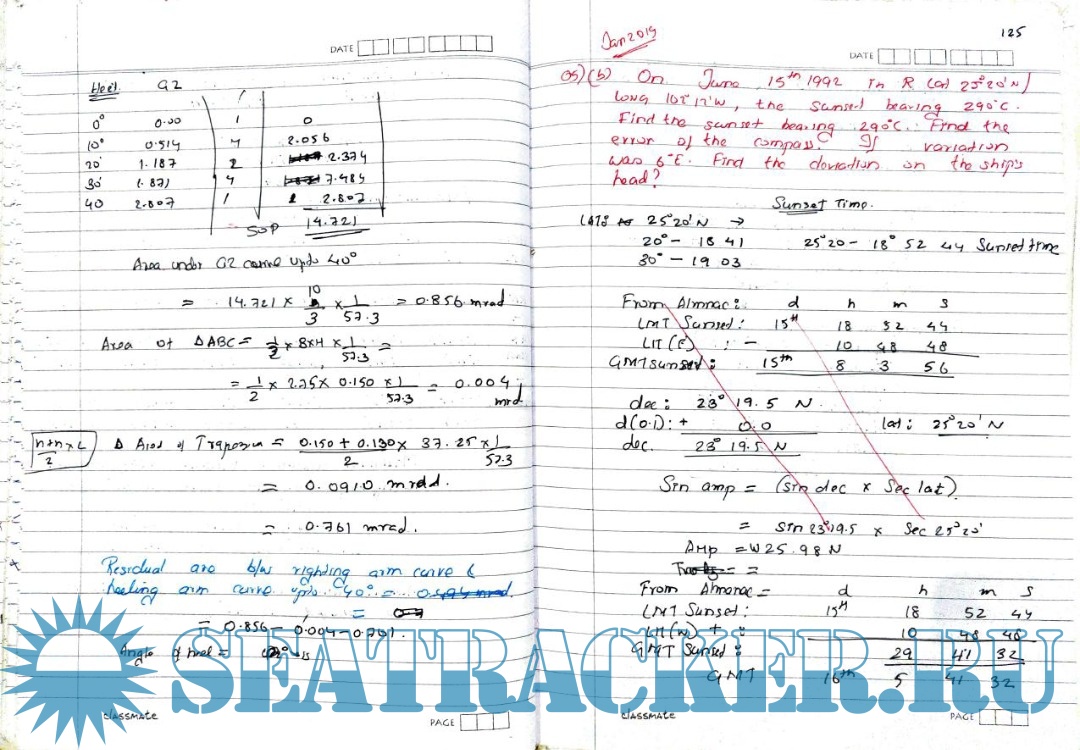 DATE
Heel GZ
0° 0.00 1 0
10° 0.514 4 2.056
20° 1.187 2 2.374
30° 1.871 4 7.484
40 2.807 1 2.807
SOP 14.721
Area under GZ curve upto 40°
= 14.721 × 10/3 × 1/57.3 = 0.856 mrad
Area of ΔABC = 1/2 × B×H × 1/57.3 =
= 1/2 × 2.75 × 0.150 × 1/57.3 = 0.004 mrd
Δ Area of Trapezium = 0.150 + 0.130/2 × 37.25 × 1/57.3
= 0.0910 mrad.
= 0.761 mrad.
Residual are b/w righting arm curve &
heeling arm curve upto 40° =
=
= 0.856 - 0.004 - 0.761.
Angle of heel =
classmate
PAGE
125
Jan 2019
DATE
Q5) (b) On June, 15th 1992 in R Lat 25°20'N
long 102°12'W, the sunset bearing 290°C.
Find the sunset bearing 290°C. Find the
error of the compass. If variation
was 6°E. Find the deviation on the ship's
head?
Sunset Time.
25°20'N →
20° - 18 41 25°20 - 18° 52 44 Sunset time
30° - 19 03
From Almnac: d h m s
LMT Sunset: 15th 18 52 44
LIT(E) : - 10 48 48
GMT sunset: 15th 8 3 56
dec: 23° 19.5 N
d(0.1): + 0.0 lat: 25°20'N
dec. 23° 19.5 N
Sin amp = (sin dec × Sec lat)
= sin 23°19.5 × Sec 25°20'
Amp = W 25.98 N
From Almanac = d h m s
LMT Sunset: 15th 18 52 44
LIT(W) + : 10 48 48
GMT Sunset: 29 41 32
GMT 16th 5 41 32
classmate
PAGE
SEATRACKER.RU